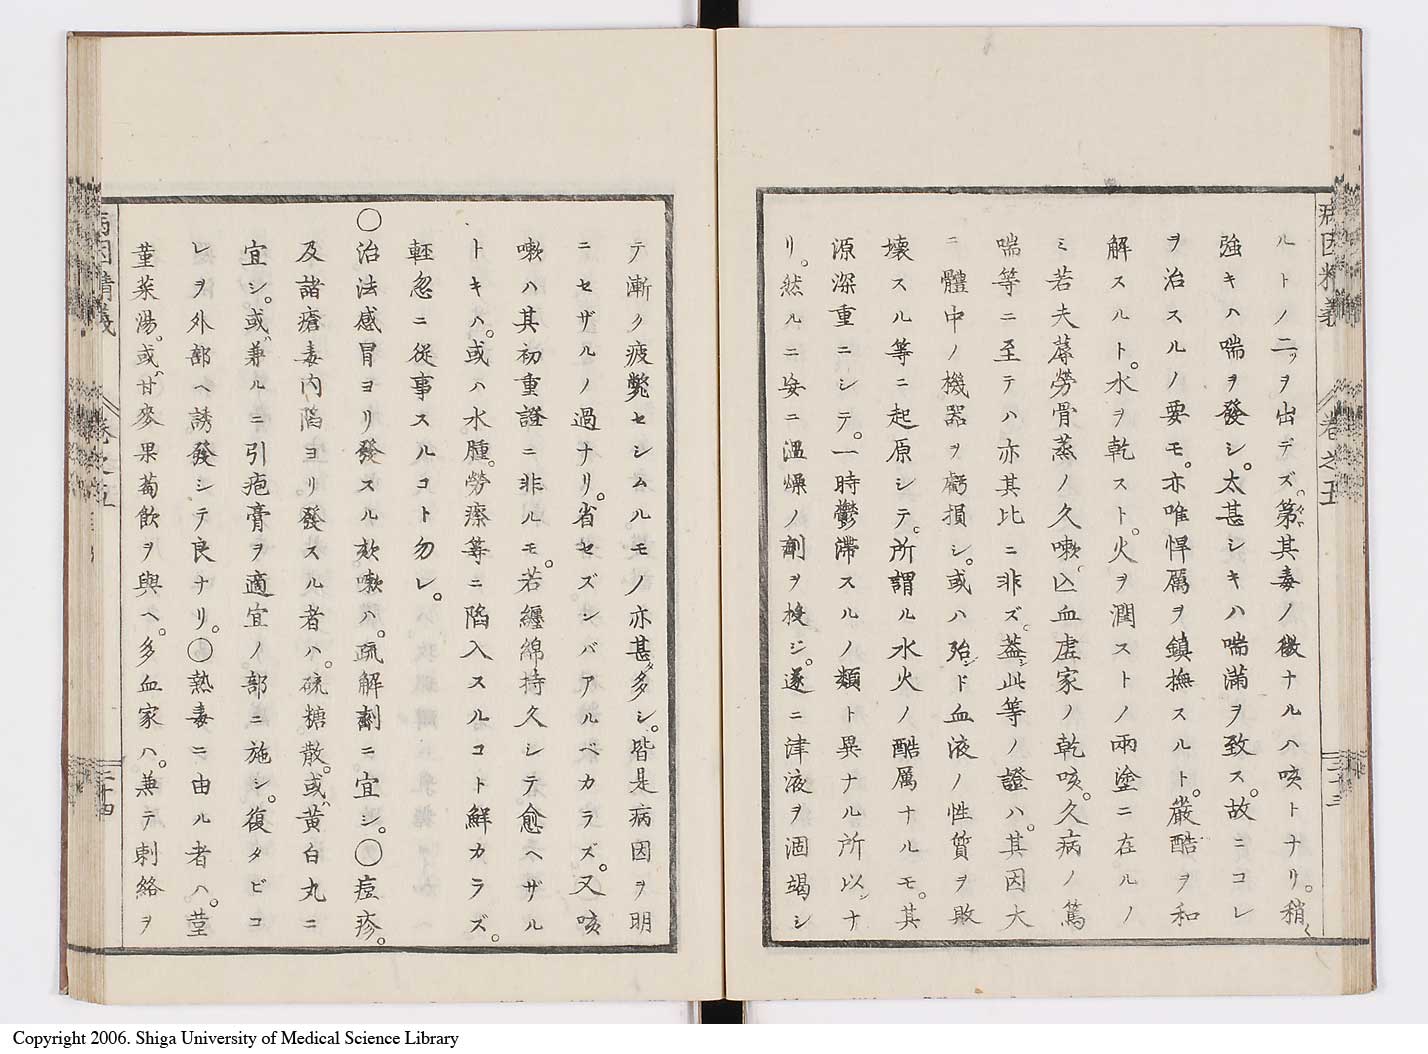 病因精義 卷之五 二十三
ルトノ二ツヲ出デズ。第其毒ノ微ナルハ咳トナリ。稍く
強キハ喘ヲ發シ。太甚シキハ喘滿ヲ致ス。故ニコレ
ヲ治スルノ要モ。亦唯悍厲ヲ鎮撫スルト。嚴酷ヲ和
解スルト。水ヲ乾スト。火ヲ潤ストノ兩塗ニ在ルノ
ミ若夫蓐勞骨蒸ノ久嗽。亾血虛家ノ乾咳。久病ノ篤
喘等ニ至テハ亦其比ニ非ズ。葢シ此等ノ證ハ。其因大
ニ體中ノ機器ヲ虧損シ。或ハ殆ンド血液ノ性質ヲ敗
壞スル等ニ起原シテ。所謂ル水火ノ酷厲ナルモ。其
源深重ニシテ。一時鬱滯スルノ類ト異ナル所以ンナ
リ。然ルニ妄ニ溫燥ノ劑ヲ投ジ。遂ニ津液ヲ涸竭シ
テ漸ク疲斃セシムルモノ亦甚ダ多シ。皆是病因ヲ明
ニセザルノ過ナリ。省セズンバアルベカラズ。又咳
嗽ハ其初重證ニ非ルモ。若纏綿持久シテ愈ヘザル
トキハ。或ハ水腫。勞瘵等ニ陷入スルコト鮮カラズ。
輕忽ニ從事スルコト勿レ。
○治法感冒ヨリ發スル欬嗽ハ。疏解劑ニ宜シ。○痘疹。
及諸瘡毒內陷ヨリ發スル者ハ。硫糖散。或ハ黃白丸ニ
宜シ。或ハ兼ルニ引疱膏ヲ適宜ノ部ニ施シ。復タビコ
レヲ外部ヘ誘發シテ良ナリ。○熱毒ニ由ル者ハ。莖
菫菜湯。或ハ甘麥果萄飲ヲ與ヘ。多血家ハ。兼テ刺絡ヲ
病因精義 卷之五 二十四
Copyright 2006. Shiga University of Medical Science Library